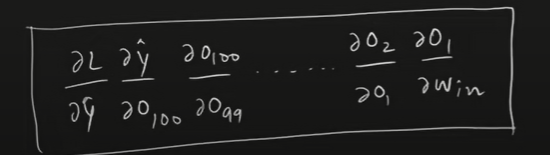 ∂L/∂ŷ ∂ŷ/∂O₁₀₀ ∂O₁₀₀/∂O₉₉ ........ ∂O₂/∂O₁ ∂O₁/∂Win